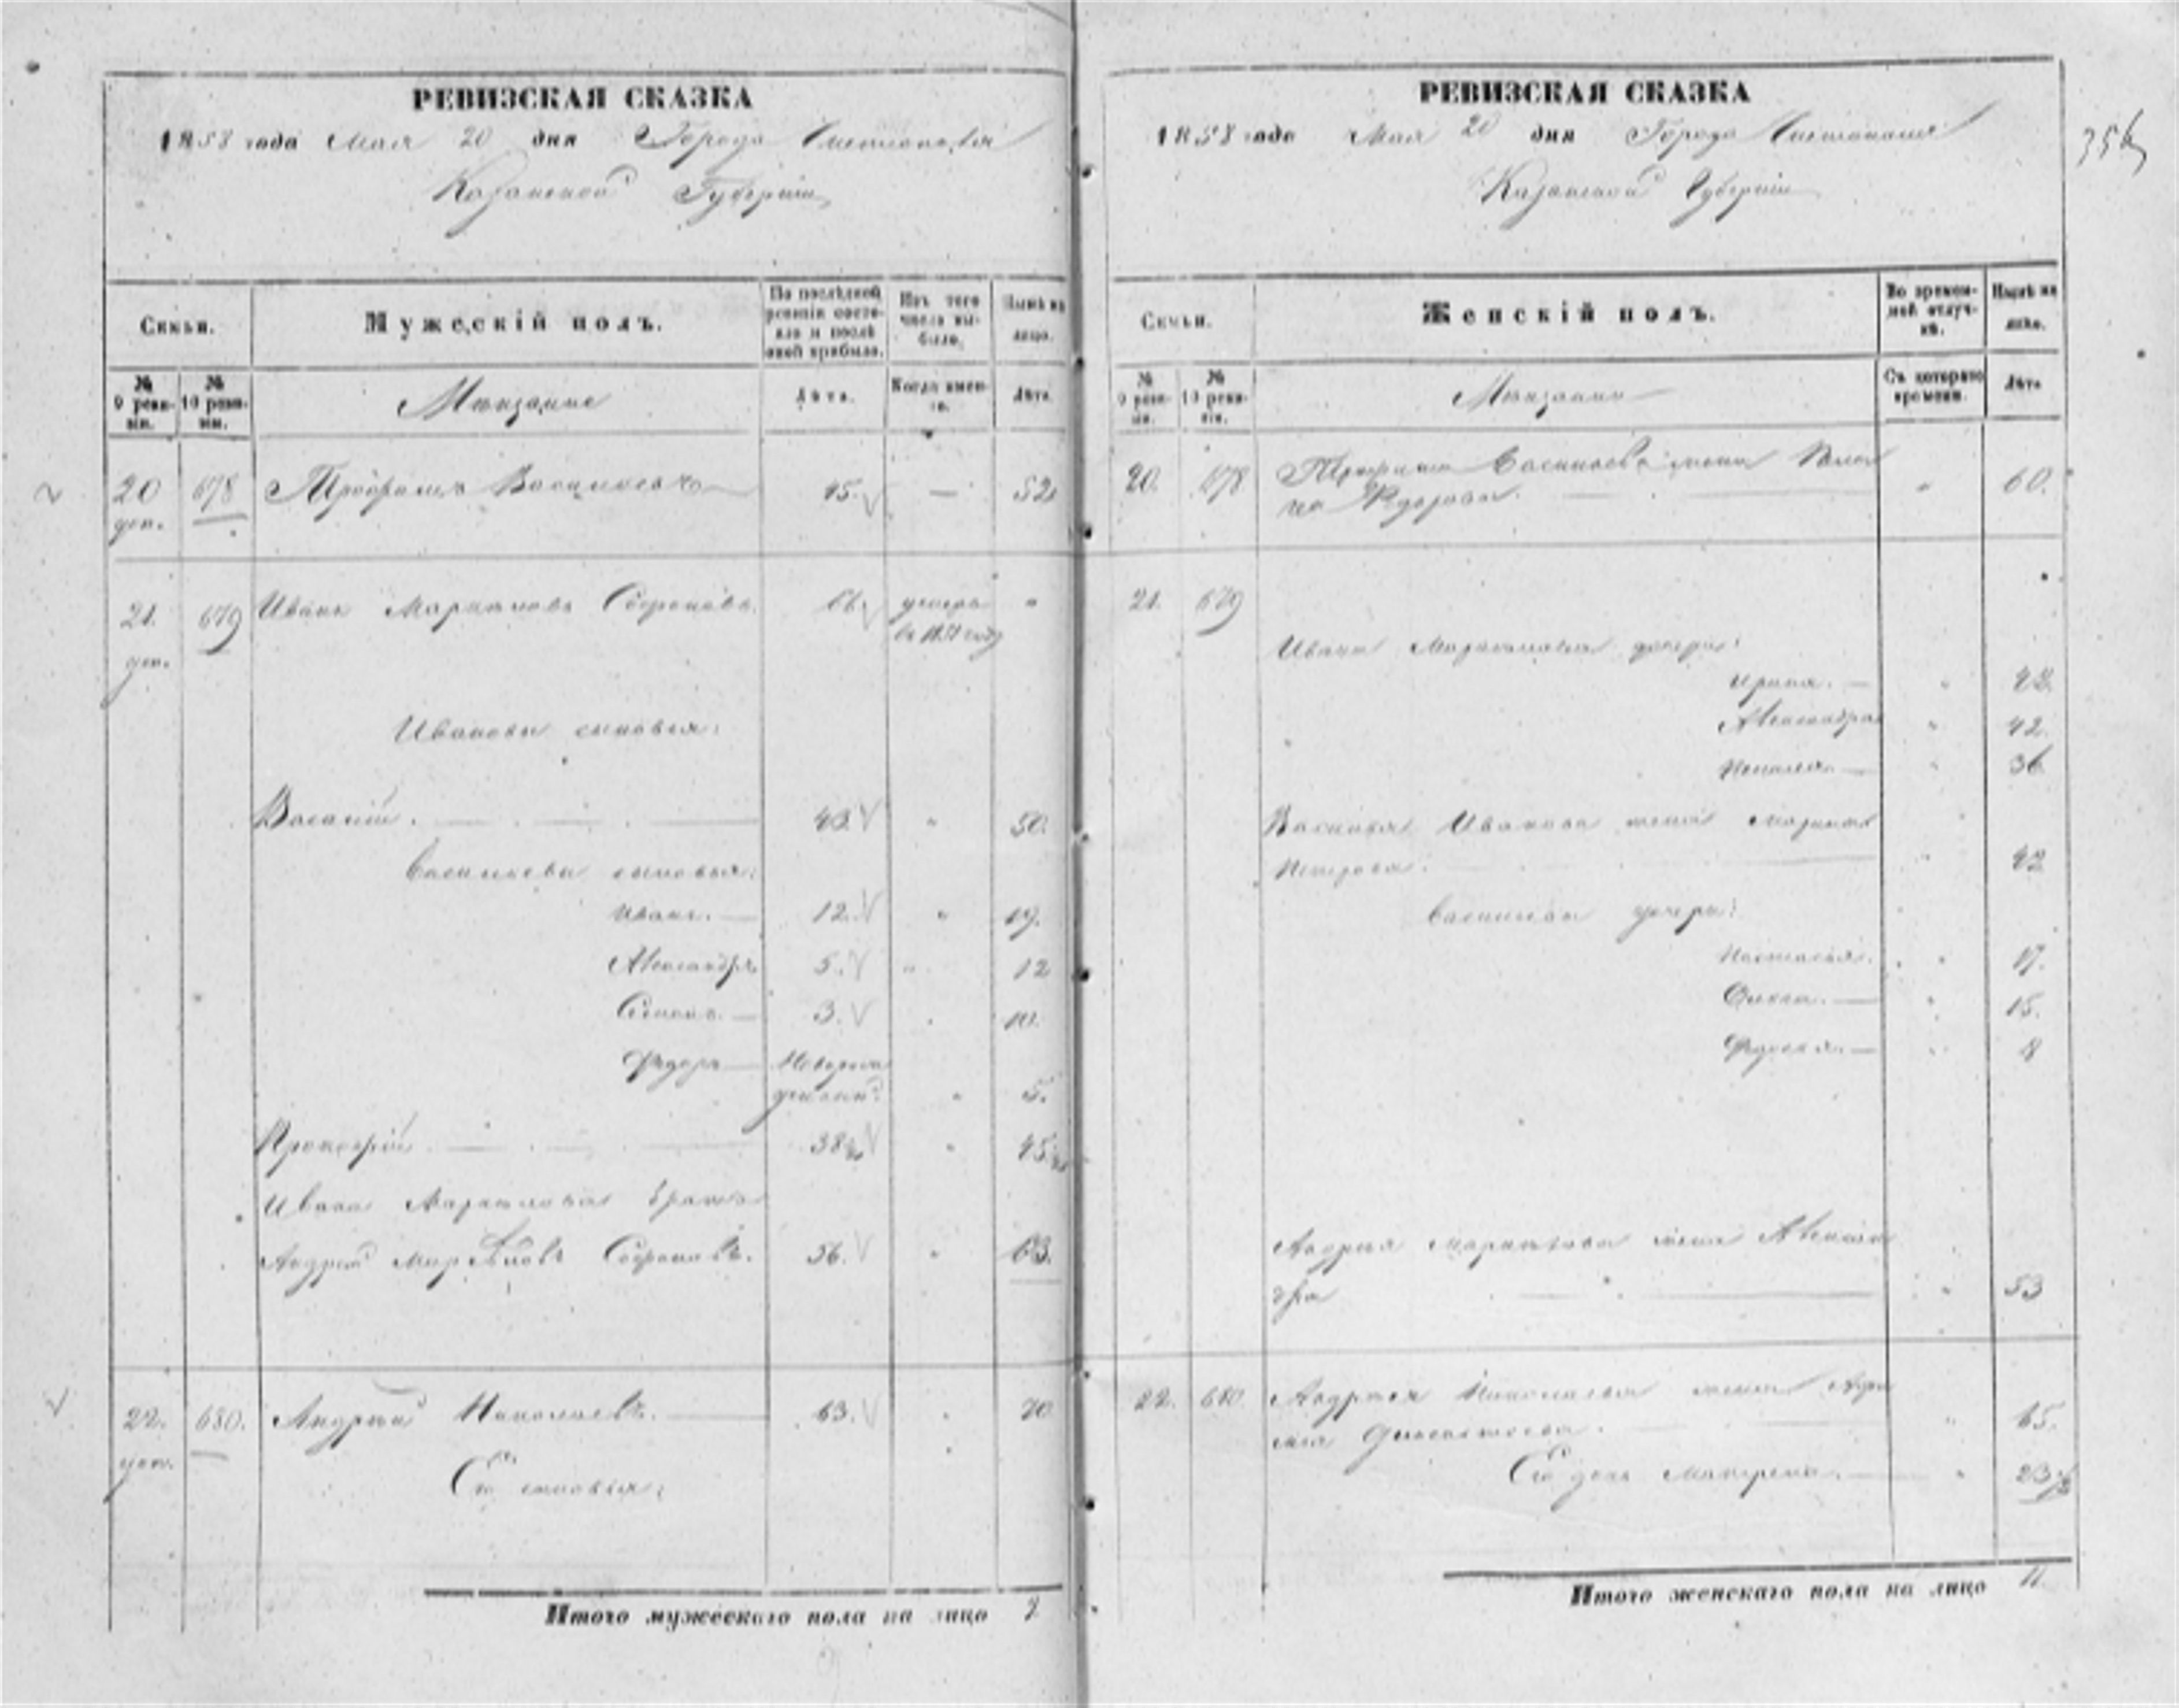 РЕВИЗСКАЯ СКАЗКА
1858 года Мая 20 дня Города Чистополя
Казанской Губерніи
Семьи.
Мужескій полъ.
По послѣдней ревизіи состояло и послѣ оной прибыло.
Изъ того числа выбыло.
Нынѣ на лицо.
№ 9 ревизіи.
№ 10 ревизіи.
Мѣщане
Лѣта.
Когда именно.
Лѣта.
20 678 Трофимъ Васильевъ 45. — 52
21. 679 Иванъ Мартыновъ Софроновъ. умеръ "
въ 1851 году
Ивановы сыновья:
Василій. 43. " 50.
Васильевы сыновья:
Иванъ. 12. " 19.
Александръ 5. " 12
Семенъ. 3. 10.
Федоръ Новорож
денный. " 5.
Прокофій 38 " 45
Ивана Мартынова братъ
Андрей Мартыновъ Софроновъ. 56. " 63.
22. 680. Андрей Николаевъ. 63. 70
Его сыновья:
Итого мужескаго пола на лицо 9
РЕВИЗСКАЯ СКАЗКА
1858 года Мая 20 дня Города Чистополя
Казанской Губерніи
356
Семьи.
Женскій полъ.
Во временной отлучкѣ.
Нынѣ на лицо.
№ 9 ревизіи.
№ 10 ревизіи.
Мѣщане
Съ котораго времени.
Лѣта
20. 678 Трофима Васильева жена
Федорова. " 60.
21. 679
Ивана Мартынова дочери:
Ирина. "
Александра " 42.
Наталья " 36
Василья Иванова жена Марина
Петрова. " 42
Васильевы дочери:
Настасья. " 17.
Ольга. " 15.
Федосья. " 8
Андрея Мартынова жена Алексан
дра " 53
22. 680 Андрея Николаева жена
" 65.
Его дочь Матрена. " 23
Итого женскаго пола на лицо 11